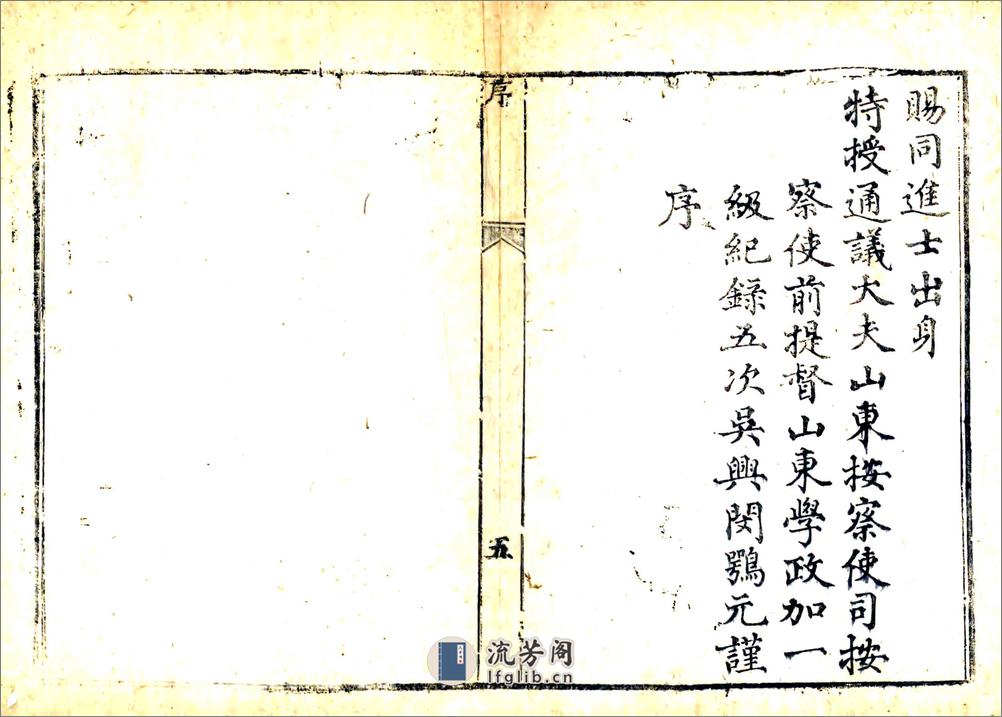 賜同進士出身
特授通議大夫山東按察使司按
察使前提督山東學政加一
級紀錄五次吳興閔鶚元謹
序
序
五
流芳阁
lfglib.cn